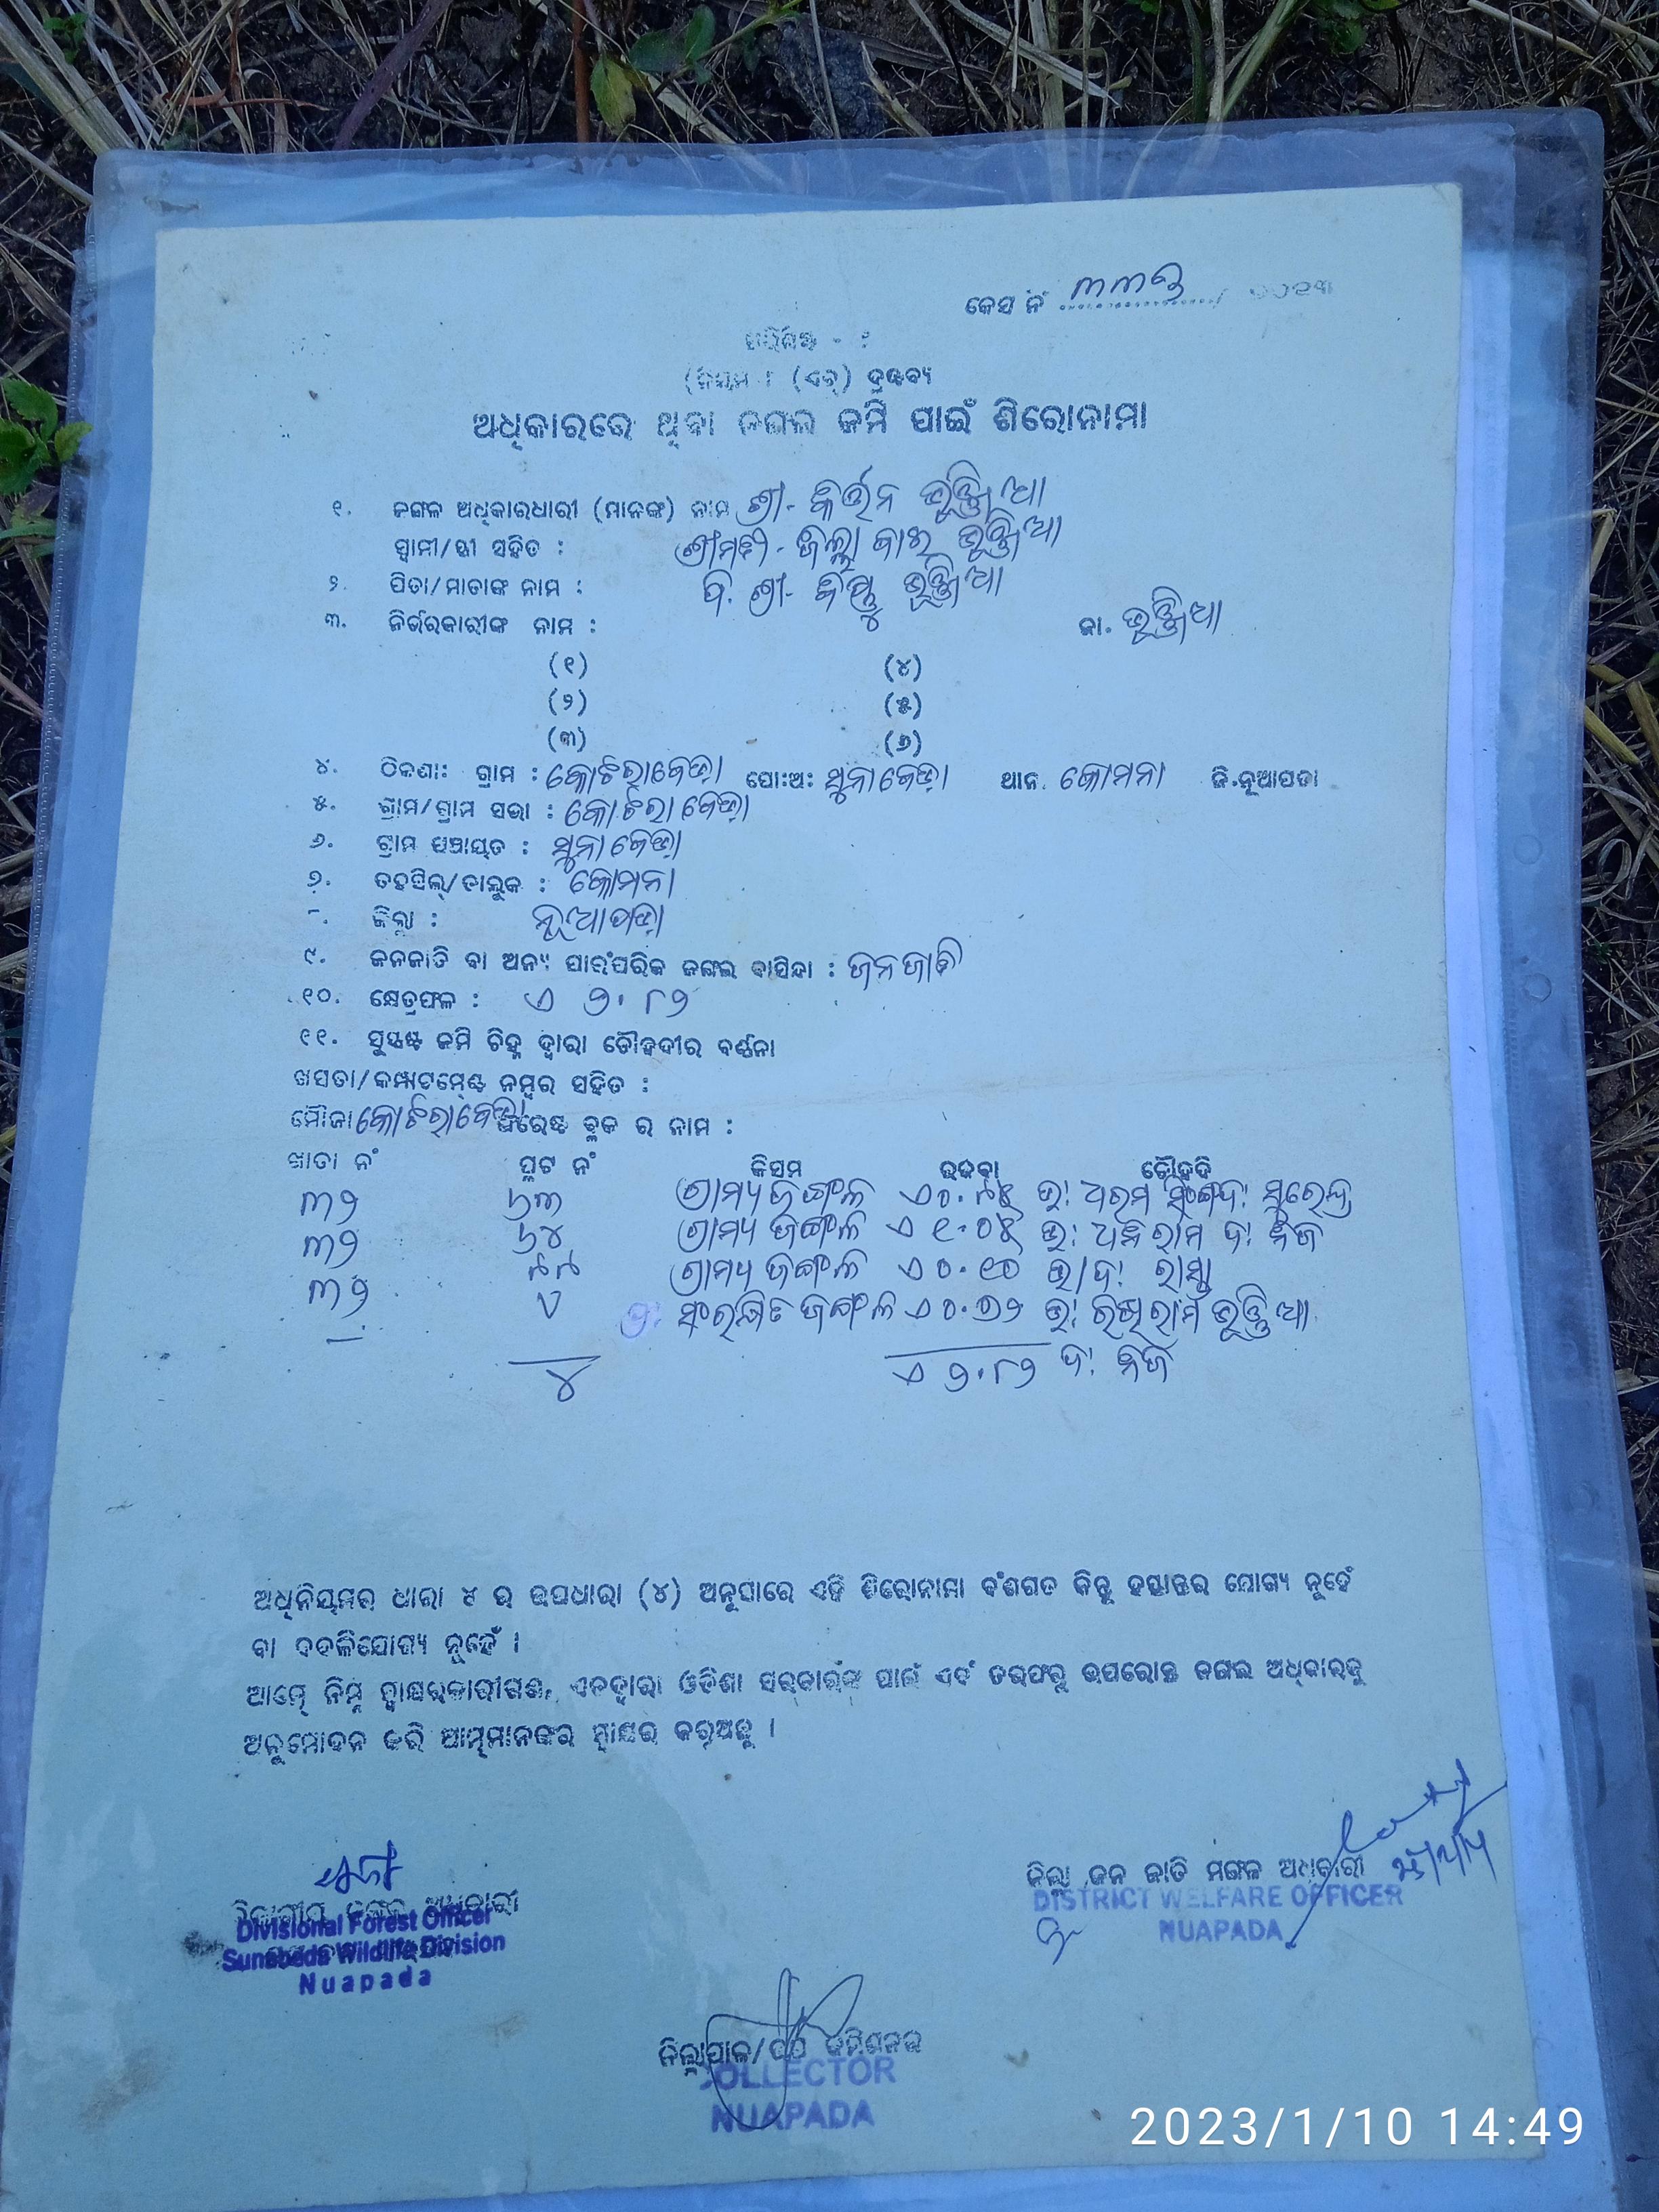 କେସ ନଂ ୩୩୭
(ନିୟମ ୮ (ଏଚ୍) ଦ୍ରଷ୍ଟବ୍ୟ
ଅଧିକାରରେ ଥିବା ଜଙ୍ଗଲ ଜମି ପାଇଁ ଶିରୋନାମା
୧. ଜଙ୍ଗଳ ଅଧିକାରଧାରୀ (ମାନଙ୍କ) ନାମ ଶ୍ରୀ- କୀର୍ତ୍ତନ ଭୁଞ୍ଜିଆ
ସ୍ୱାମୀ/ସ୍ତ୍ରୀ ସହିତ : ଶ୍ରୀମତୀ - ଭୁଞ୍ଜିଆ
୨. ପିତା/ମାତାଙ୍କ ନାମ : ପି. ଶ୍ରୀ- ଭୁଞ୍ଜିଆ
୩. ନିର୍ଭରକାରୀଙ୍କ ନାମ : ଜା. ଭୁଞ୍ଜିଆ
(୧) (୪)
(୨) (୫)
(୩) (୬)
୪. ଠିକଣା: ଗ୍ରାମ : କୋଟରାବେଡ଼ା ପୋ:ଅ: ସୁନାବେଡ଼ା ଥାନା. କୋମନା ଜି.ନୂଆପଡା
୫. ଗ୍ରାମ/ଗ୍ରାମ ସଭା : କୋଟରାବେଡ଼ା
୬. ଗ୍ରାମ ପଞ୍ଚାୟତ : ସୁନାବେଡ଼ା
୭. ତହସିଲ୍/ତାଲୁକ : କୋମନା
୮. ଜିଲ୍ଲା : ନୂଆପଡ଼ା
୯. ଜନଜାତି ବା ଅନ୍ୟ ପାରଂପରିକ ଜଙ୍ଗଲ ବାସିନ୍ଦା : ଜନଜାତି
୧୦. କ୍ଷେତ୍ରଫଳ : ଏ ୨.୮୨
୧୧. ସୁସ୍ପଷ୍ଟ ଜମି ଚିହ୍ନ ଦ୍ୱାରା ଚୌହଦୀର ବର୍ଣ୍ଣନା
ଖସଡା/କମ୍ପାର୍ଟମେଣ୍ଟ ନମ୍ବର ସହିତ :
ମୌଜା କୋଟରାବେଡ଼ା ଫରେଷ୍ଟ ବ୍ଲକ ର ନାମ :
ଖାତା ନଂ ପ୍ଲଟ ନଂ କିସମ ରକବା ଚୌହଦି
୩୨ ୬୩ ଗ୍ରାମ୍ୟ ଜଙ୍ଗଲ ଏ ୦.୯୫ ଉ: ଧରମ ସିଂ ଦ: ସୁରେନ୍ଦ୍ର
୩୨ ୬୪ ଗ୍ରାମ୍ୟ ଜଙ୍ଗଲ ଏ ୧.୦୫ ଉ: ଧନିରାମ ଦ: ନିଜ
୩୨ ୯୯ ଗ୍ରାମ୍ୟ ଜଙ୍ଗଲ ଏ ୦.୧୦ ଉ/ଦ: ରାସ୍ତା
ସଂରକ୍ଷିତ ଜଙ୍ଗଲ ଏ ୦.୭୨ ଉ: ଭୁଞ୍ଜିଆ
୪ ଏ ୨.୮୨ ଦ: ନିଜ
ଅଧିନିୟମର ଧାରା ୪ ର ଉପଧାରା (୪) ଅନୁସାରେ ଏହି ଶିରୋନାମା ବଂଶଗତ କିନ୍ତୁ ହସ୍ତାନ୍ତର ଯୋଗ୍ୟ ନୁହେଁ
ବା ବଦଳିଯୋଗ୍ୟ ନୁହେଁ ।
ଆମ୍ଭେ ନିମ୍ନ ସ୍ୱାକ୍ଷରକାରୀଗଣ, ଏତଦ୍ଦ୍ୱାରା ଓଡିଶା ସରକାରଙ୍କ ପାଇଁ ଏବଂ ତରଫରୁ ଉପରୋକ୍ତ ଜଙ୍ଗଲ ଅଧିକାରକୁ
ଅନୁମୋଦନ କରି ଆମ୍ଭମାନଙ୍କର ସ୍ୱାକ୍ଷର କରୁଅଛୁ ।
ଜିଲ୍ଲା ଜନ ଜାତି ମଙ୍ଗଳ ଅଧିକାରୀ
DISTRICT WELFARE OFFICER
NUAPADA
ବିଭାଗୀୟ ଜଙ୍ଗଲ ଅଧିକାରୀ
Divisional Forest Officer
Sunabeda Wildlife Division
Nuapada
ଜିଲ୍ଲାପାଳ/ଉପ କମିଶନର
COLLECTOR
NUAPADA
2023/1/10 14:49